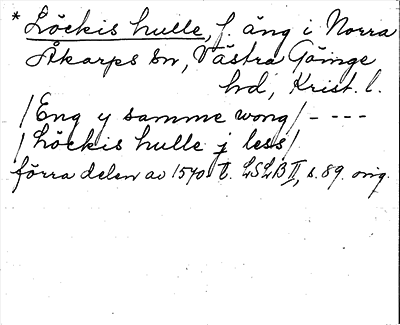 * Löckis hulle, f. äng i Norra
Åkarps sn, Västra Göinge
hd, Krist. l.
/Eng y samme wong/ - - - -
/Löckis hulle j less/
förra delen av 1540-t. LSLB II, s. 89. orig.